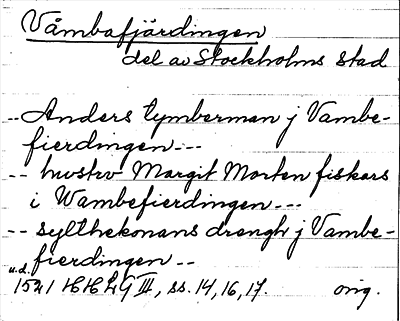 Våmbafjärdingen
del av Stockholms stad
-- Anders tymberman j Vambe-
fierdingen ---
-- hustrv Margit Morten fiskars
i Wambefierdingen ---
-- sylthekonans drengh j Vambe-
fierdingen --
u.d.
1521 HH I, ss. 14, 16, 17. orig.